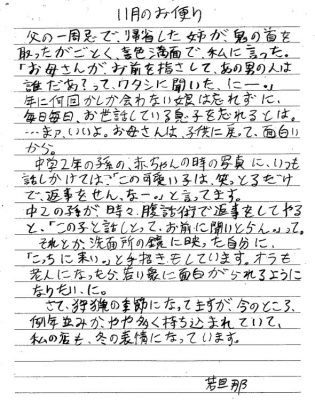 11月のお便り
父の一周忌で、帰省した姉が鬼の首を
取ったがごとく、喜色満面で、私に言った。
「お母さんが、お前を指さして、あの男の人は
誰だあ?って、ワタシに聞いた、にー。」
年に何回かしか会わない娘は忘れずに、
毎日毎日、お世話している息子を忘れるとは。
…まァ、いいよ。お母さんは、子供に戻って、面白い
から。
中学2年の孫の、赤ちゃんの時の写真に、いつも
話しかけては、「この可愛い子は、笑っとるだけ
で、返事をせん、なー。」と言ってます。
中2の孫が、時々、腹話術で返事をしてやる
と、「この子と話しとって、お前に聞いとらん。」って。
それとか、洗面所の鏡に映った自分に、
「こっちに来い。」と手招きをしています。オラも
老人になったら、若い衆に面白がられるように
なりたい、に。
さて、狩猟の季節になってますが、今のところ、
例年並みか、やや多く持ち込まれていて、
私の店も、冬の表情になっています。
若旦那